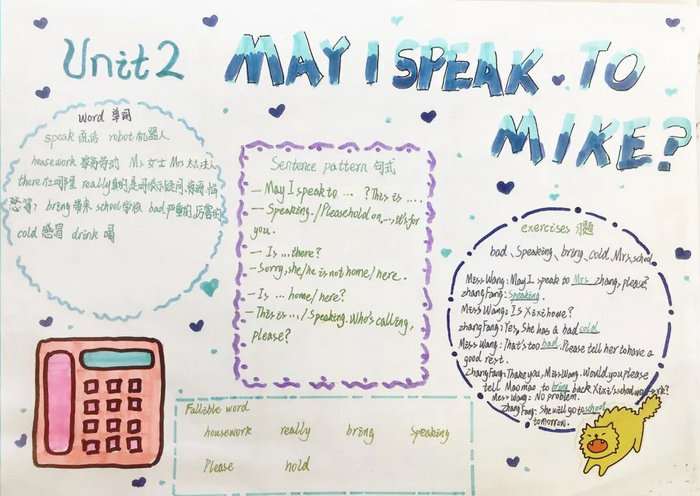 Unit 2
MAY I SPEAK TO
MIKE?
Word 单词
speak 说话 robot 机器人
housework 家务劳动 Ms 女士 Mrs 太太,夫人
there 在那里 really
bring 带来 school 学校 bad 严重的,厉害的
cold 感冒 drink 喝
Sentence pattern 句式
— May I speak to ... ? This is ....
— Speaking. / Please hold on, ... it's for
you.
— Is ... there?
— Sorry, she/he is not home/here.
— Is ... home/here?
— This is .../Speaking. Who's calling,
please?
Fallible word
housework really bring Speaking
Please hold
exercises 习题
bad、Speaking、bring、cold、Mrs、school
Miss Wang: May I speak to Mrs zhang, please?
zhang Fang: Speaking.
Miss Wang: Is Xixi home?
zhang Fang: Yes, She has a bad cold.
Miss Wang: That's too bad. Please tell her to have a
good rest.
zhang Fang: Thank you, Miss Wang. Would you please
tell Mao mao to bring back Xixi's school work?
Miss Wang: No problem.
zhang Fang: She will go to school
tomorrow.